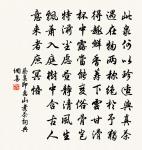 此泉何以珍適與真茶
遇在物兩稱絕於予獨
得趣鮮香箸下雲甘滑
杯中露當能變俗骨豈
特湔塵慮晝靜清風生
飄蕭入庭樹中含古人
意來者庶冥悟
蔡襄即惠山煮茶句典
網